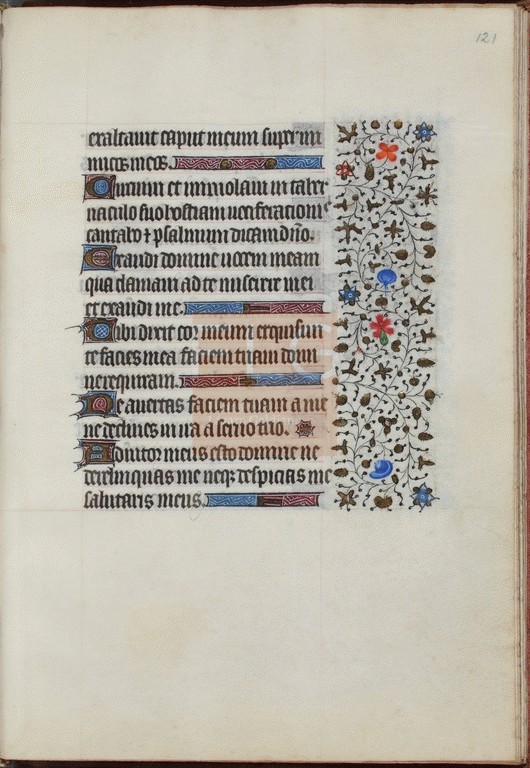 121
exaltavit caput meum super ini
micos meos.
Circuivi et immolavi in taber
naculo suo hostiam vociferationis
cantabo ⁊ psalmum dicam dño.
Exaudi domine vocem meam
qua clamavi ad te miserere mei
et exaudi me.
Tibi dixit cor meum exquisivi
te facies mea faciem tuam domi
ne requiram.
Ne avertas faciem tuam a me
ne declines in ira a servo tuo.
Adiutor meus esto domine ne
derelinquas me neqꝫ despicias me
salutaris meus.